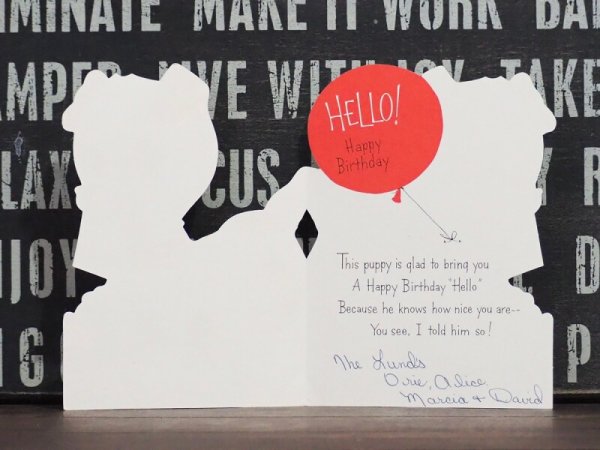 MINATE MAKE IT WORK
LIVE WITH JOY TAKE
LAX
CUS
JOY
HELLO!
Happy
Birthday
This puppy is glad to bring you
A Happy Birthday "Hello"
Because he knows how nice you are--
You see, I told him so!
The Lunds
Orie, Alice
Marcia + David